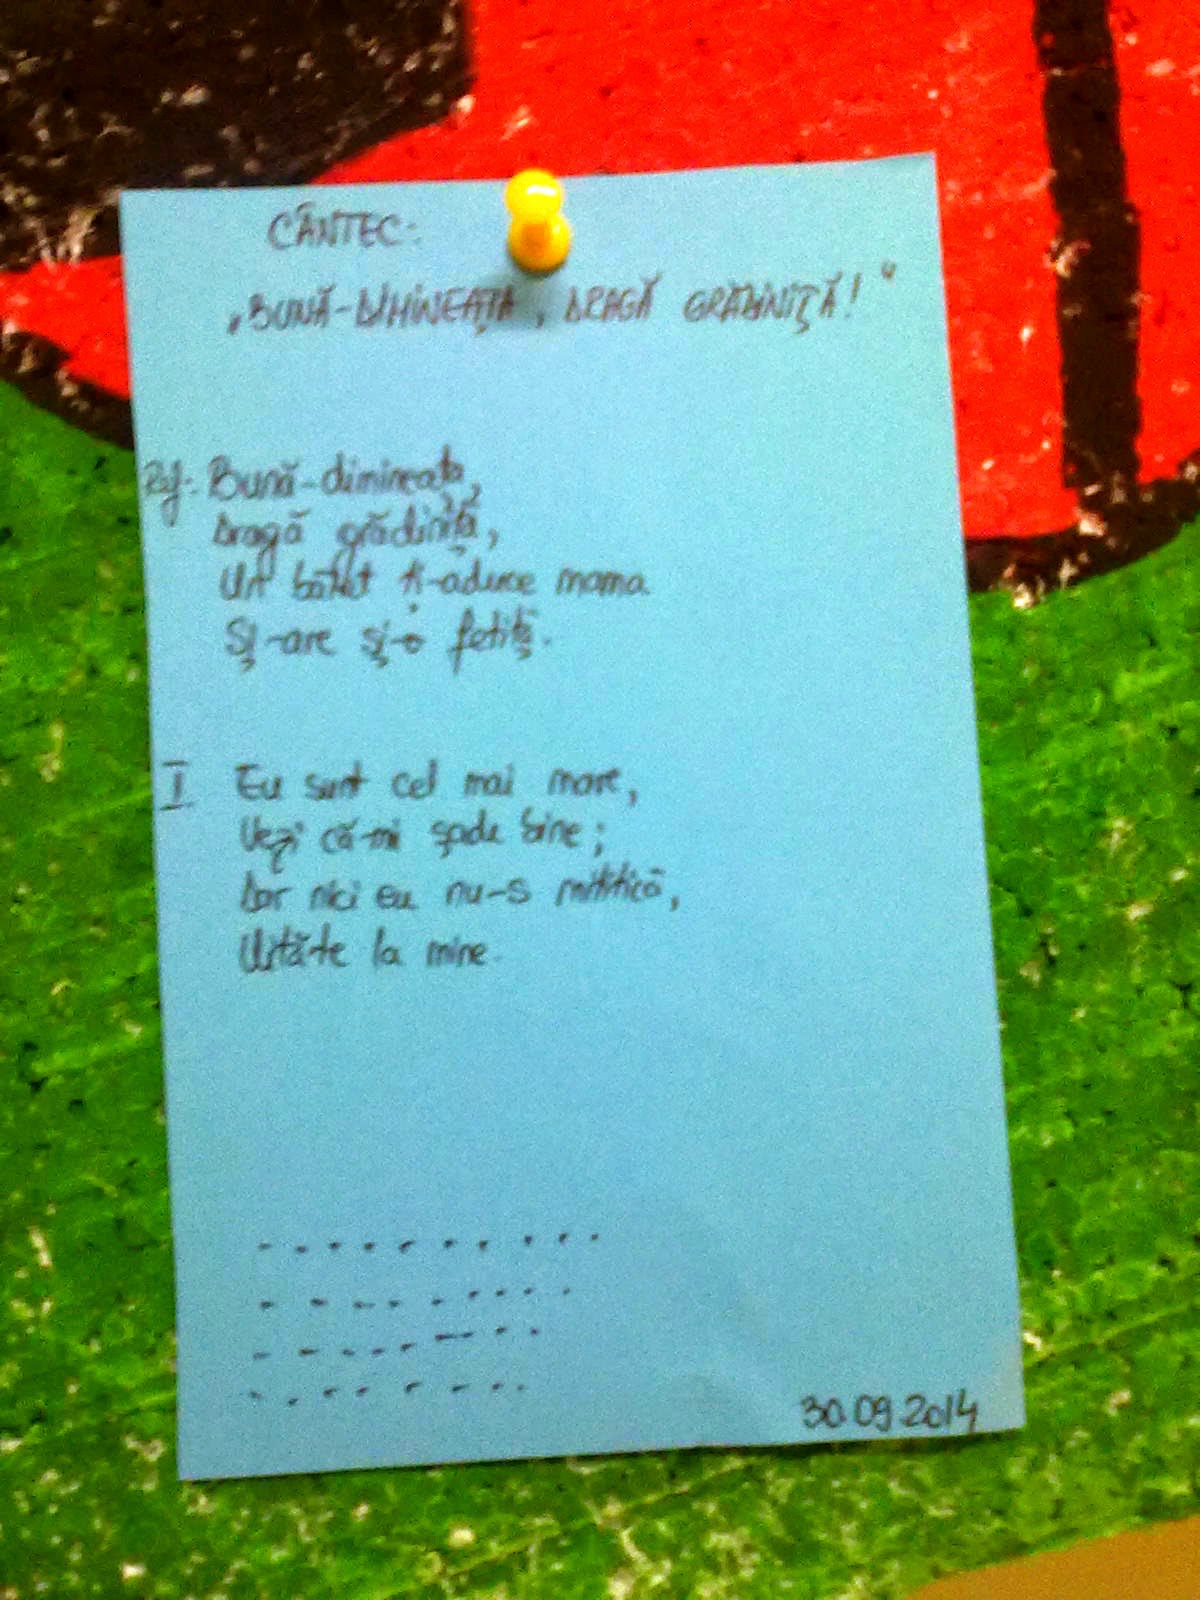 CÂNTEC:
„BUNĂ-DIMINEAȚA, DRAGĂ GRĂDINIȚĂ!"
Ref: Bună-dimineața,
Dragă grădiniță,
Un băiet ți-aduce mama
Și-are și-o fetiță.
I Eu sunt cel mai mare,
Vezi că-mi șade bine;
Dar nici eu nu-s mititică,
Uită-te la mine.
30.09.2014